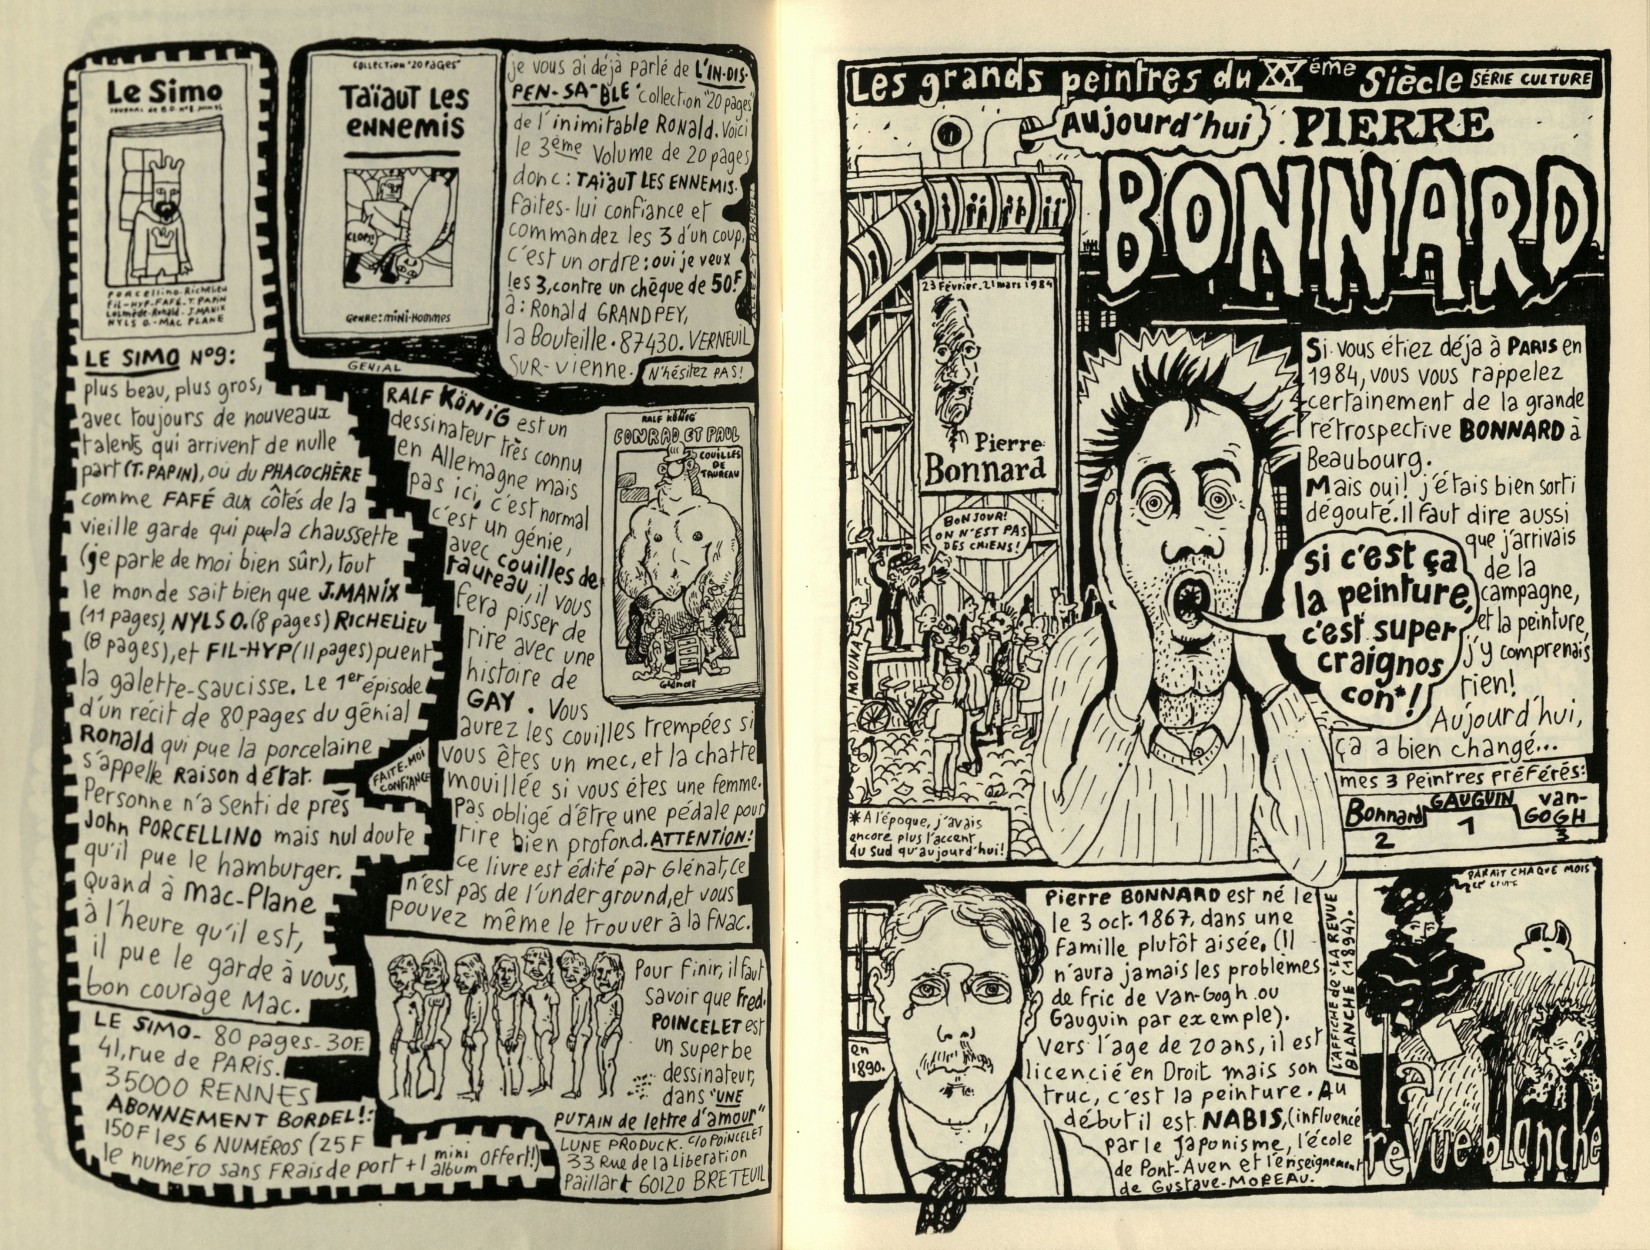 Le Simo
PORCELLINO. RICHELIEU
FIL-HYP. FAFÉ. T. PAPIN
Ronald. J.MANIX
NYLS O. MAC PLANE
LE SIMO N°9:
plus beau, plus gros,
avec toujours de nouveaux
talents qui arrivent de nulle
part (T. PAPIN), ou du PHACOCHÈRE
comme FAFÉ aux côtés de la
vieille garde qui pue la chaussette
(je parle de moi bien sûr), tout
le monde sait bien que J.MANIX
(11 pages), NYLS O. (8 pages) RICHELIEU
(8 pages), et FIL-HYP (11 pages) puent
la galette-saucisse. Le 1er épisode
d'un récit de 80 pages du génial
Ronald qui pue la porcelaine
s'appelle Raison d'état.
Personne n'a senti de près
John PORCELLINO mais nul doute
qu'il pue le hamburger.
Quand à Mac-Plane
à l'heure qu'il est,
il pue le garde à vous,
bon courage Mac.
FAITE-MOI
CONFIANCE
LE SIMO - 80 pages - 30F.
41, rue de PARIS.
35000 RENNES
ABONNEMENT BORDEL!:
150F les 6 NUMÉROS (25F
le numéro sans FRais de port + 1 mini album offert!)
COLLECTION "20 PAGES"
Taïaut Les
ennemis
CLOP!!
Genre: mini-hommes
GENIAL
je vous ai déjà parlé de L'IN-DIS-
PEN-SA-BLE collection "20 pages"
de l'inimitable Ronald. Voici
le 3ème volume de 20 pages
donc: TAÏAUT LES ENNEMIS.
Faites-lui confiance et
commandez les 3 d'un coup,
c'est un ordre: oui je veux
les 3, contre un chèque de 50F
à: Ronald GRANDPEY,
la Bouteille. 87430. VERNEUIL
SUR-vienne.
N'hésitez PAS!
ALLEZ-Y BORDEL
RALF KÖNIG est un
dessinateur très connu
en Allemagne mais
pas ici, c'est normal
c'est un génie,
avec couilles de
taureau, il vous
fera pisser de
rire avec une
histoire de
GAY. Vous
aurez les couilles trempées si
vous êtes un mec, et la chatte
mouillée si vous êtes une femme.
Pas obligé d'être une pédale pour
rire bien profond. ATTENTION!
ce livre est édité par Glénat, ce
n'est pas de l'underground, et vous
pouvez même le trouver à la Fnac.
RALF KÖNIG
CONRAD ET PAUL
COUILLES
DE
TAUREAU
Glénat
Pour finir, il faut
savoir que Fred.
POINCELET est
un superbe
dessinateur,
dans "UNE
PUTAIN de lettre d'amour"
LUNE PRODUCK. c/o POINCELET
33 Rue de la Liberation
Paillart 60120 BRETEUIL
Les grands peintres du XXème Siècle SÉRIE CULTURE
Aujourd'hui PIERRE
BONNARD
23 Février. 21 mars 1984
Pierre
Bonnard
BONJOUR!
ON N'EST PAS
DES CHIENS!
MOUNA
Si vous étiez déja à PARIS en
1984, vous vous rappelez
certainement de la grande
rétrospective BONNARD à
Beaubourg.
Mais oui! j'étais bien sorti
dégouté. Il faut dire aussi
que j'arrivais
de la
campagne,
et la peinture
j'y comprenais
rien!
Aujourd'hui,
ça a bien changé...
Si c'est ça
la peinture,
c'est super
craignos
con*!
mes 3 Peintres préférés:
Bonnard GAUGUIN van-GOGH
2 1 3
* A l'époque, j'avais
encore plus l'accent
du Sud qu'aujourd'hui!
en
1890.
Pierre BONNARD est né le
le 3 oct. 1867, dans une
Famille plutôt aisée. (Il
n'aura jamais les problèmes
de fric de Van-Gogh ou
Gauguin par exemple).
Vers l'age de 20 ans, il est
licencié en Droit mais son
truc, c'est la peinture. Au
début il est NABIS, (influencé
par le Japonisme, l'école
de Pont-Aven et l'enseignement
de Gustave-MOREAU.
L'AFFICHE de LA REVUE
BLANCHE (1894).
PARAIT CHAQUE MOIS
la
reVue blanche